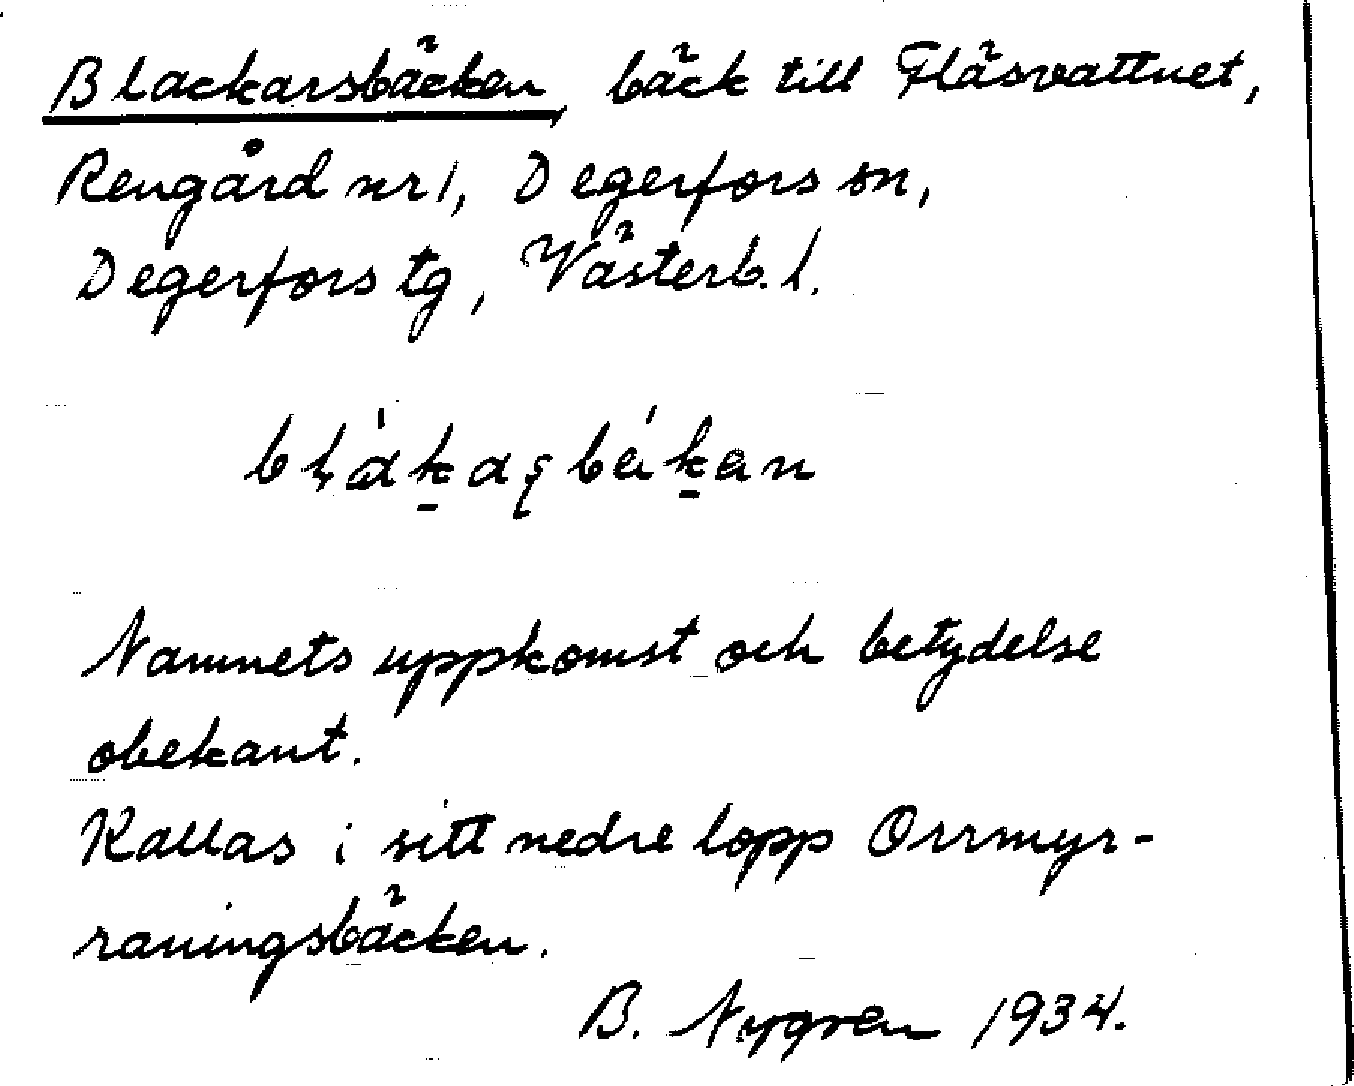 Blackarsbäcken, bäck till Flåsvattnet,
Rengård nr 1, Degerfors sn,
Degerfors tg, Västerb. l.
Namnets uppkomst och betydelse
obekant.
Kallas i sitt nedre lopp Orrmyr-
raningsbäcken.
B. Nygren 1934.